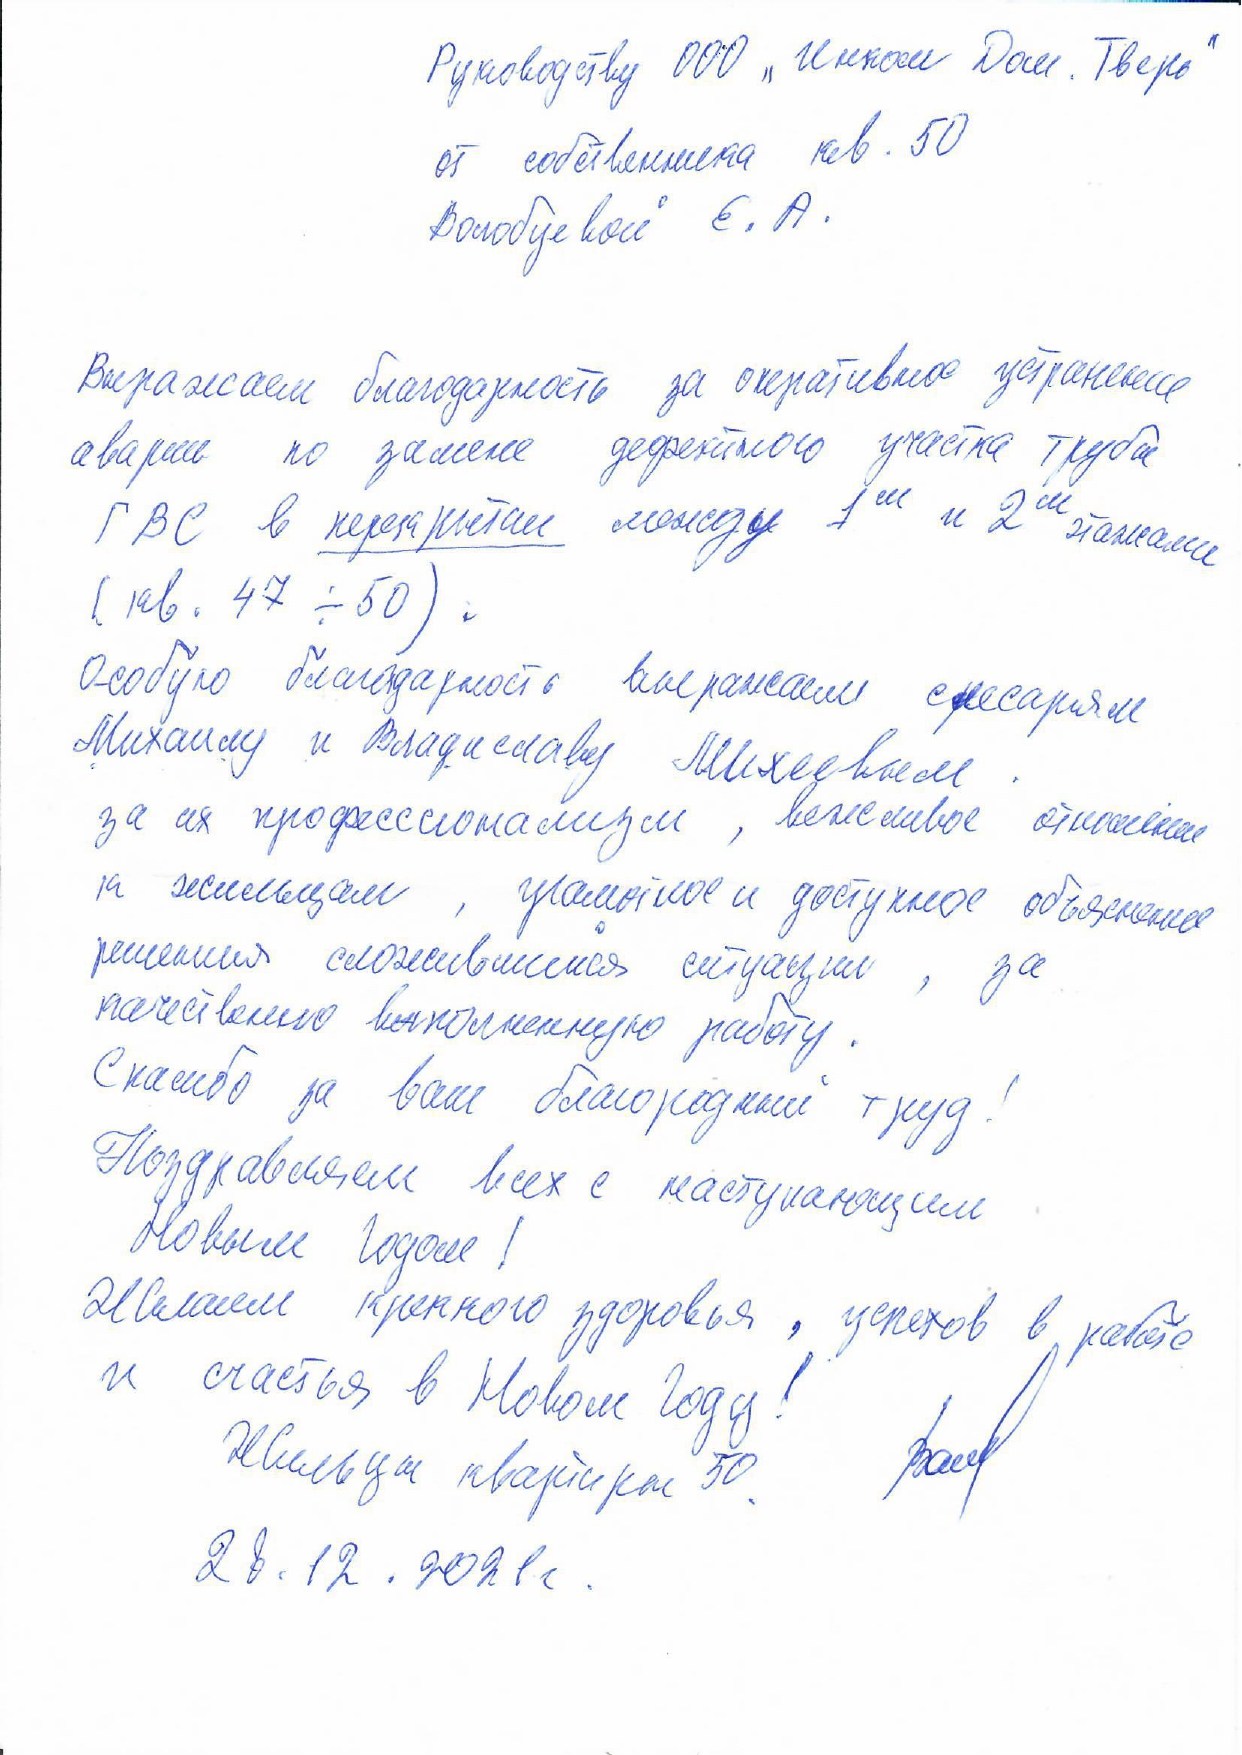 Руководству ООО „Инком Дом. Тверь"
от собственника кв. 50
Волобуевой Е. А.
Выражаем благодарность за оперативное устранение
аварии по замене дефектного участка трубы
ГВС в перекрытии между 1м и 2м этажами
(кв. 47 ÷ 50).
Особую благодарность выражаем слесарям
Михаилу и Владиславу Михеевым.
за их профессионализм, вежливое отношение
к жильцам, грамотное и доступное объяснение
решения сложившейся ситуации, за
качественно выполненную работу.
Спасибо за ваш благородный труд!
Поздравляем всех с наступающим
Новым Годом!
Желаем крепкого здоровья, успехов в работе
и счастья в Новом Году!
Жильцы квартиры 50.
28.12.2021г.